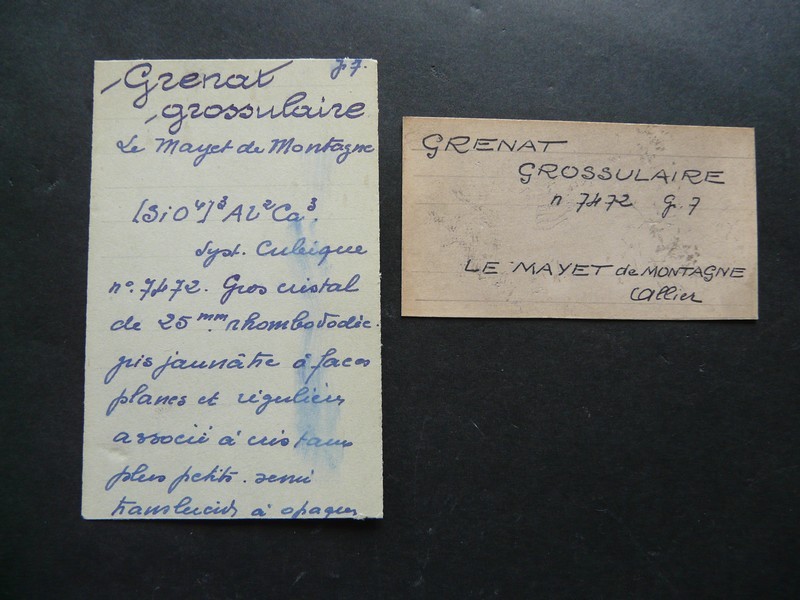 g.7.
Grenat
grossulaire
Le Mayet de Montagne
[SiO⁴]³Al²Ca³.
Syst. Cubique
n°.7472. Gros cristal
de 25 mm rhombodódéc.
gris jaunâtre à faces
planes et régulières
associé à cristaux
plus petits. semi
translucides à opaques
GRENAT
GROSSULAIRE
n 7472 g.7
LE MAYET de MONTAGNE
Allier